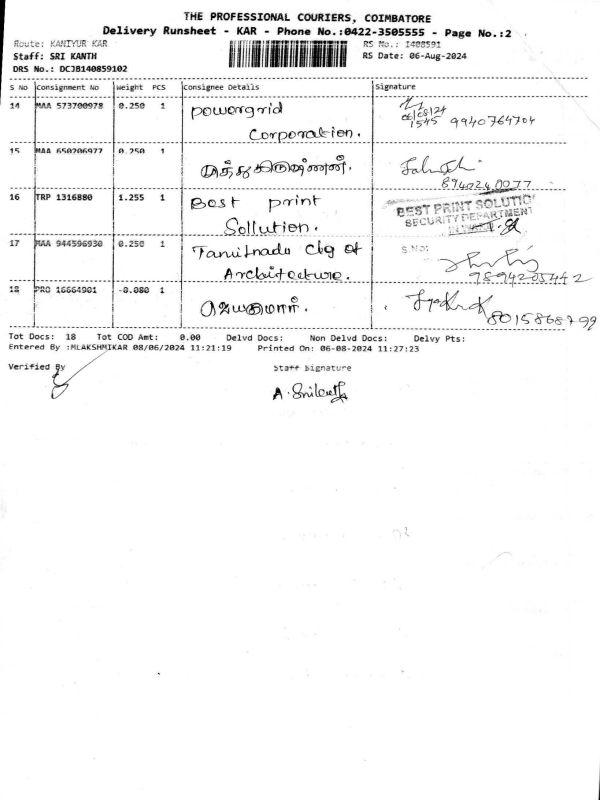 THE PROFESSIONAL COURIERS, COIMBATORE
Delivery Runsheet - KAR - Phone No.:0422-3505555 - Page No.:2
Route: KANIYUR KAR
RS No.: I408591
Staff: SRI KANTH
RS Date: 06-Aug-2024
DRS No.: DCJB140859102
S No Consignment No Weight PCS Consignee Details Signature
14 MAA 573700978 0.250 1 Powergrid
Corporation.
06/08/24
1545 9940764704
15 MAA 650206977 0.250 1 முத்துகிருஷ்ணன்.
8940240077
16 TRP 1316880 1.255 1 Best print
Sollution.
BEST PRINT SOLUTIO
SECURITY DEPARTMENT
S.No:
17 MAA 944596930 0.250 1 Tamilnadu Clg of
Architecture.
9894205442
18 PRO 16664901 -0.080 1 ஜெயகுமார்.
8015868799
Tot Docs: 18 Tot COD Amt: 0.00 Delvd Docs: Non Delvd Docs: Delvy Pts:
Entered By :MLAKSHMIKAR 08/06/2024 11:21:19 Printed On: 06-08-2024 11:27:23
Verified By
Staff Signature